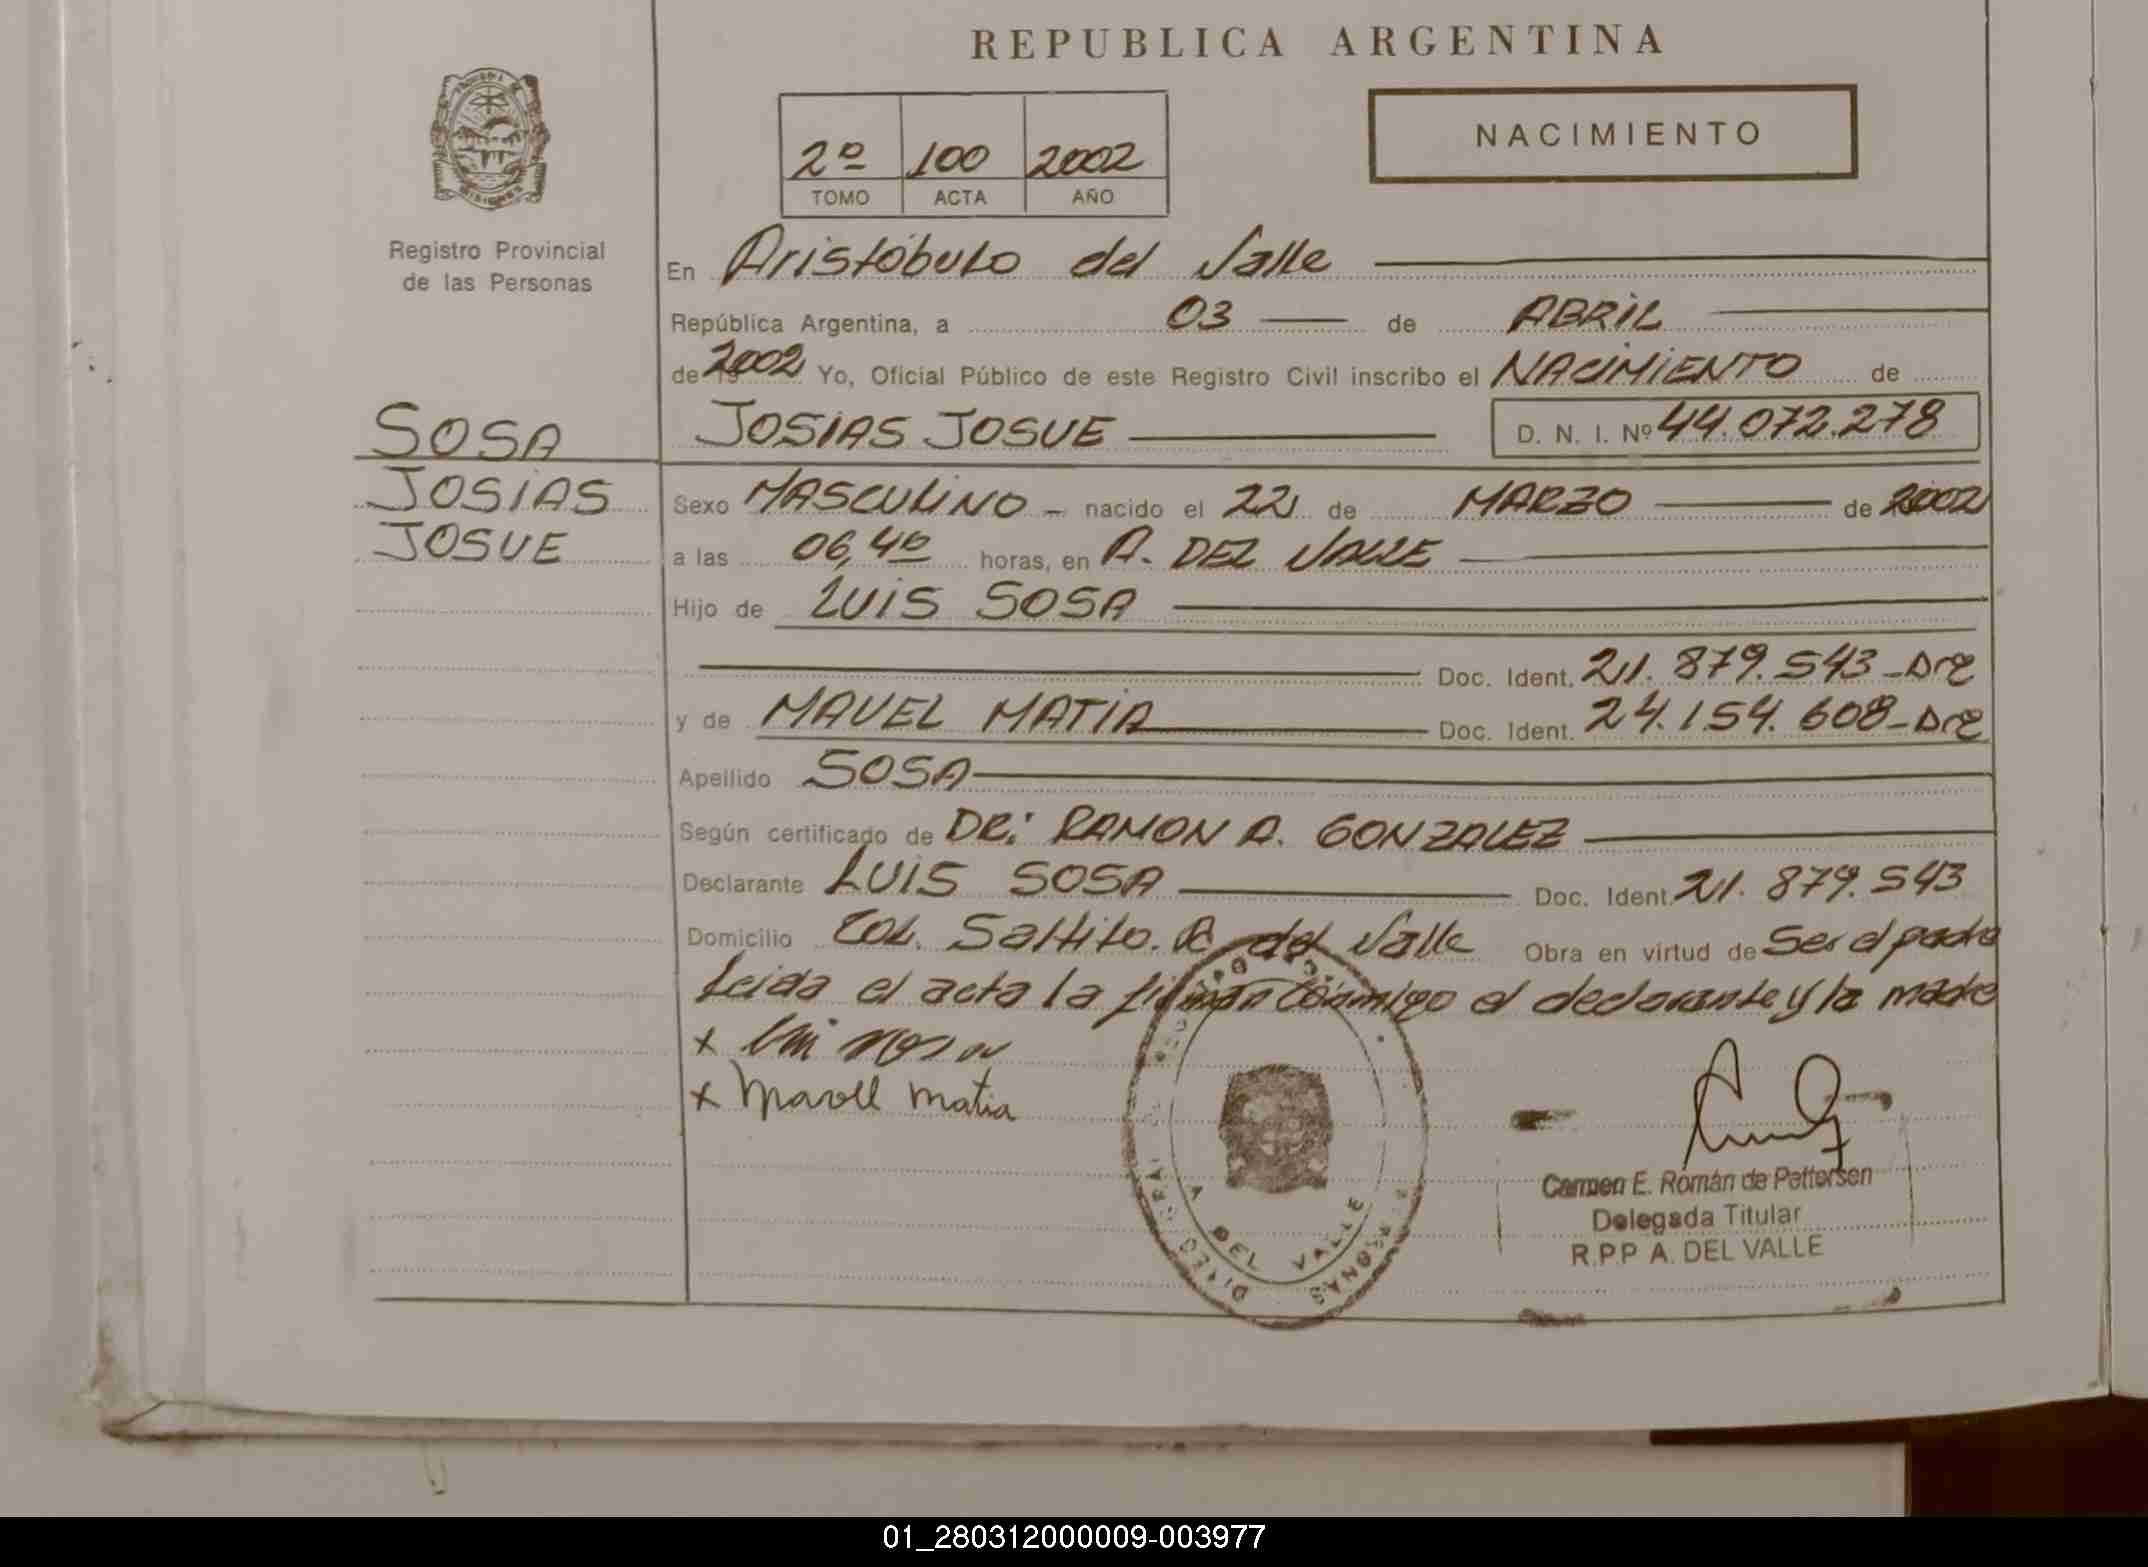 REPUBLICA ARGENTINA
NACIMIENTO
2º 100 2002
TOMO ACTA AÑO
MISIONES
Registro Provincial
de las Personas
En Aristóbulo del Valle
República Argentina, a 03 de ABRIL
de 2002 Yo, Oficial Público de este Registro Civil inscribo el NACIMIENTO de
SOSA
JOSIAS
JOSUE
JOSIAS JOSUE D. N. I. Nº 44.072.278
Sexo MASCULINO - nacido el 22 de MARZO de 2002
a las 06,40 horas, en A. DEL VALLE
Hijo de LUIS SOSA
Doc. Ident. 21.879.543-Arg
y de MAUEL MATIA Doc. Ident. 24.154.608-Arg
Apellido SOSA
Según certificado de DR: RAMON A. GONZALEZ
Declarante LUIS SOSA Doc. Ident. 21.879.543
Domicilio Col. Saltito. A del Valle Obra en virtud de Ser el padre
Leida el acta la firman conmigo el declarante y la madre
x
x Mavel matia
A DEL VALLE
PERSONAS
Carmen E. Román de Pettersen
Delegada Titular
R.P.P A. DEL VALLE
01_280312000009-003977